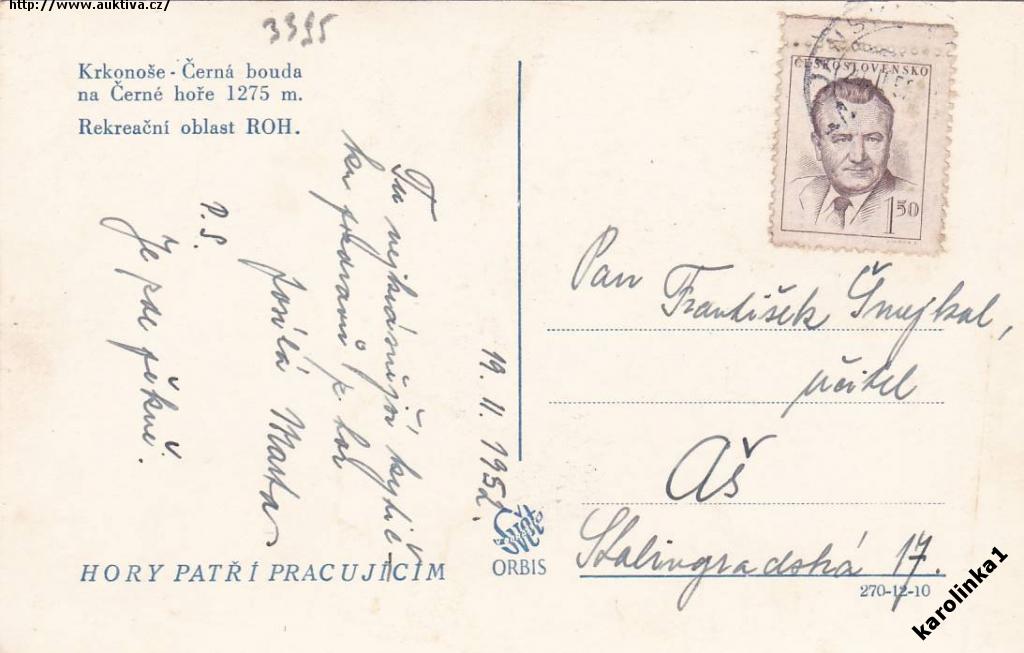 http://www.auktiva.cz/
3395
Krkonoše - Černá bouda
na Černé hoře 1275 m.
Rekreační oblast ROH.
Tu nejkrásnější kytič-
ku pozdravů z hor
posílá Marta.
P.S.
Je zde pěkně.
19. II. 1952.
HORY PATŘÍ PRACUJÍCÍM
ORBIS
ČESKOSLOVENSKO
1 50
Pan František Šmejkal,
učitel
Aš
Stalingradská 17.
270-12-10
karolinka1